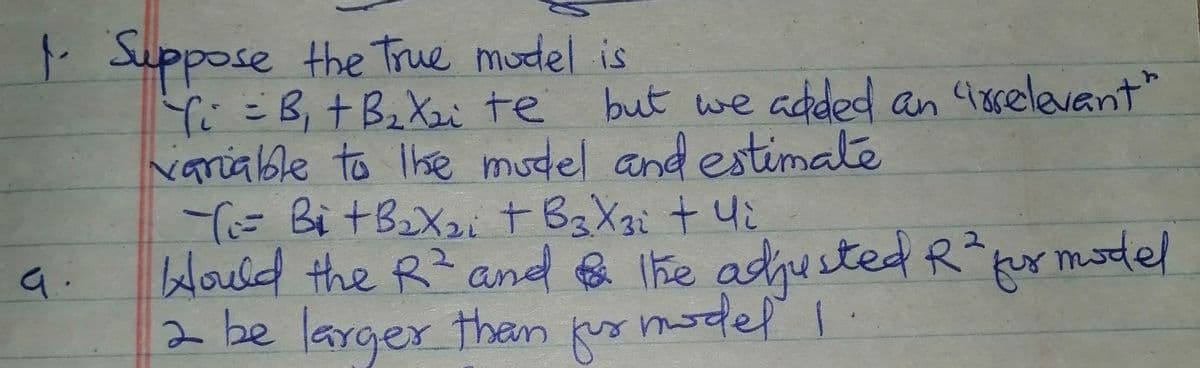 1. Suppose the True model is
Yi = B1 + B2X2i + e but we added an "irrelevant"
variable to the model and estimate
Yi = Bi + B2X2i + B3X3i + Ui
a. Would the R² and the adjusted R² for model
2 be larger than for model 1.